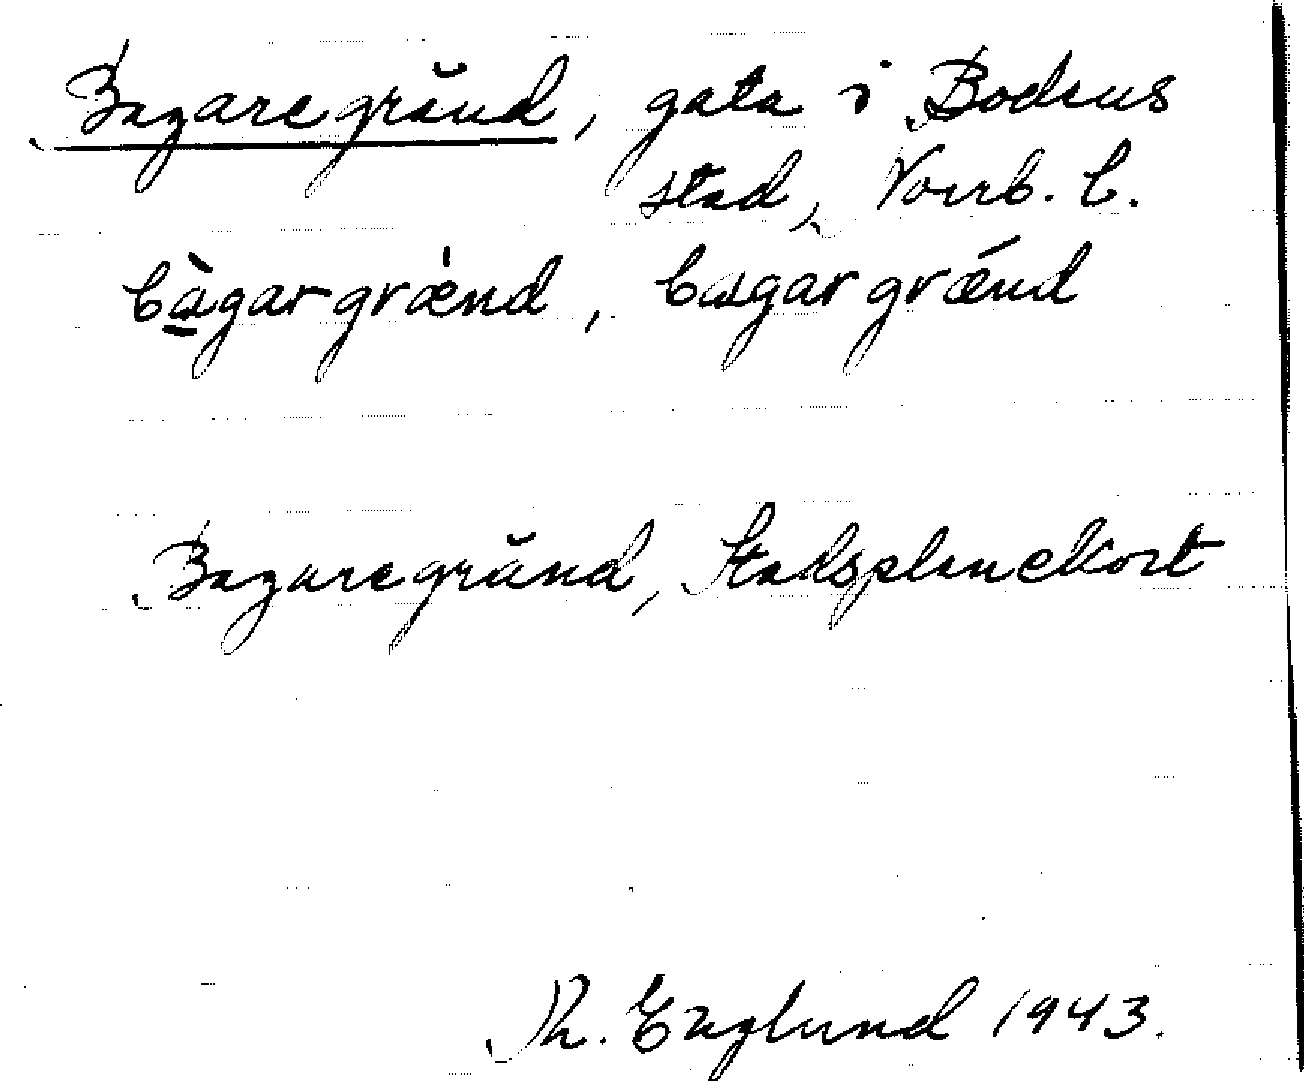 Bagaregränd, gata i Bodens
stad, Norrb. l.
bàgargrænd, bagargrǽnd
Bagaregränd, Stadsplanekort
Th. Englund 1943.